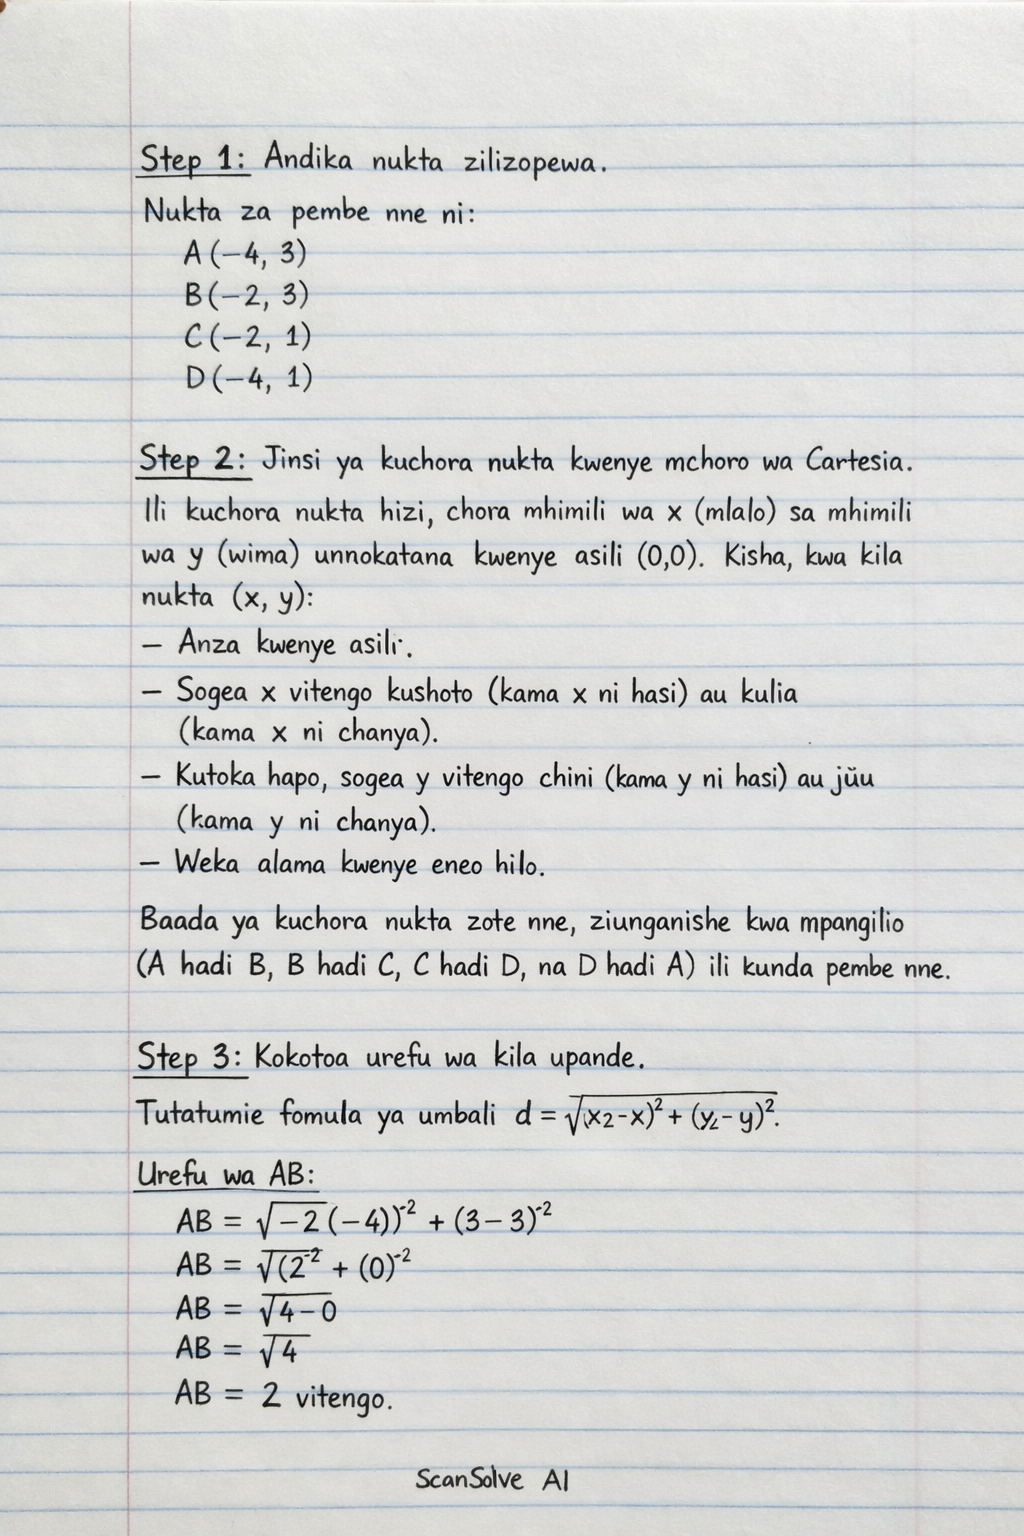 Step 1: Andika nukta zilizopewa.
Nukta za pembe nne ni:
A(−4, 3)
B(−2, 3)
C(−2, 1)
D(−4, 1)
Step 2: Jinsi ya kuchora nukta kwenye mchoro wa Cartesia.
Ili kuchora nukta hizi, chora mhimili wa x (mlalo) sa mhimili
wa y (wima) unnokatana kwenye asili (0,0). Kisha, kwa kila
nukta (x, y):
— Anza kwenye asili.
— Sogea x vitengo kushoto (kama x ni hasi) au kulia
(kama x ni chanya).
— Kutoka hapo, sogea y vitengo chini (kama y ni hasi) au jŭu
(kama y ni chanya).
— Weka alama kwenye eneo hilo.
Baada ya kuchora nukta zote nne, ziunganishe kwa mpangilio
(A hadi B, B hadi C, C hadi D, na D hadi A) ili kunda pembe nne.
Step 3: Kokotoa urefu wa kila upande.
Tutatumie fomula ya umbali d = √(x₂-x)² + (y₂-y)².
Urefu wa AB:
AB = √−2(−4))⁻² + (3−3)⁻²
AB = √(2⁻² + (0)⁻²
AB = √4−0
AB = √4
AB = 2 vitengo.
ScanSolve AI